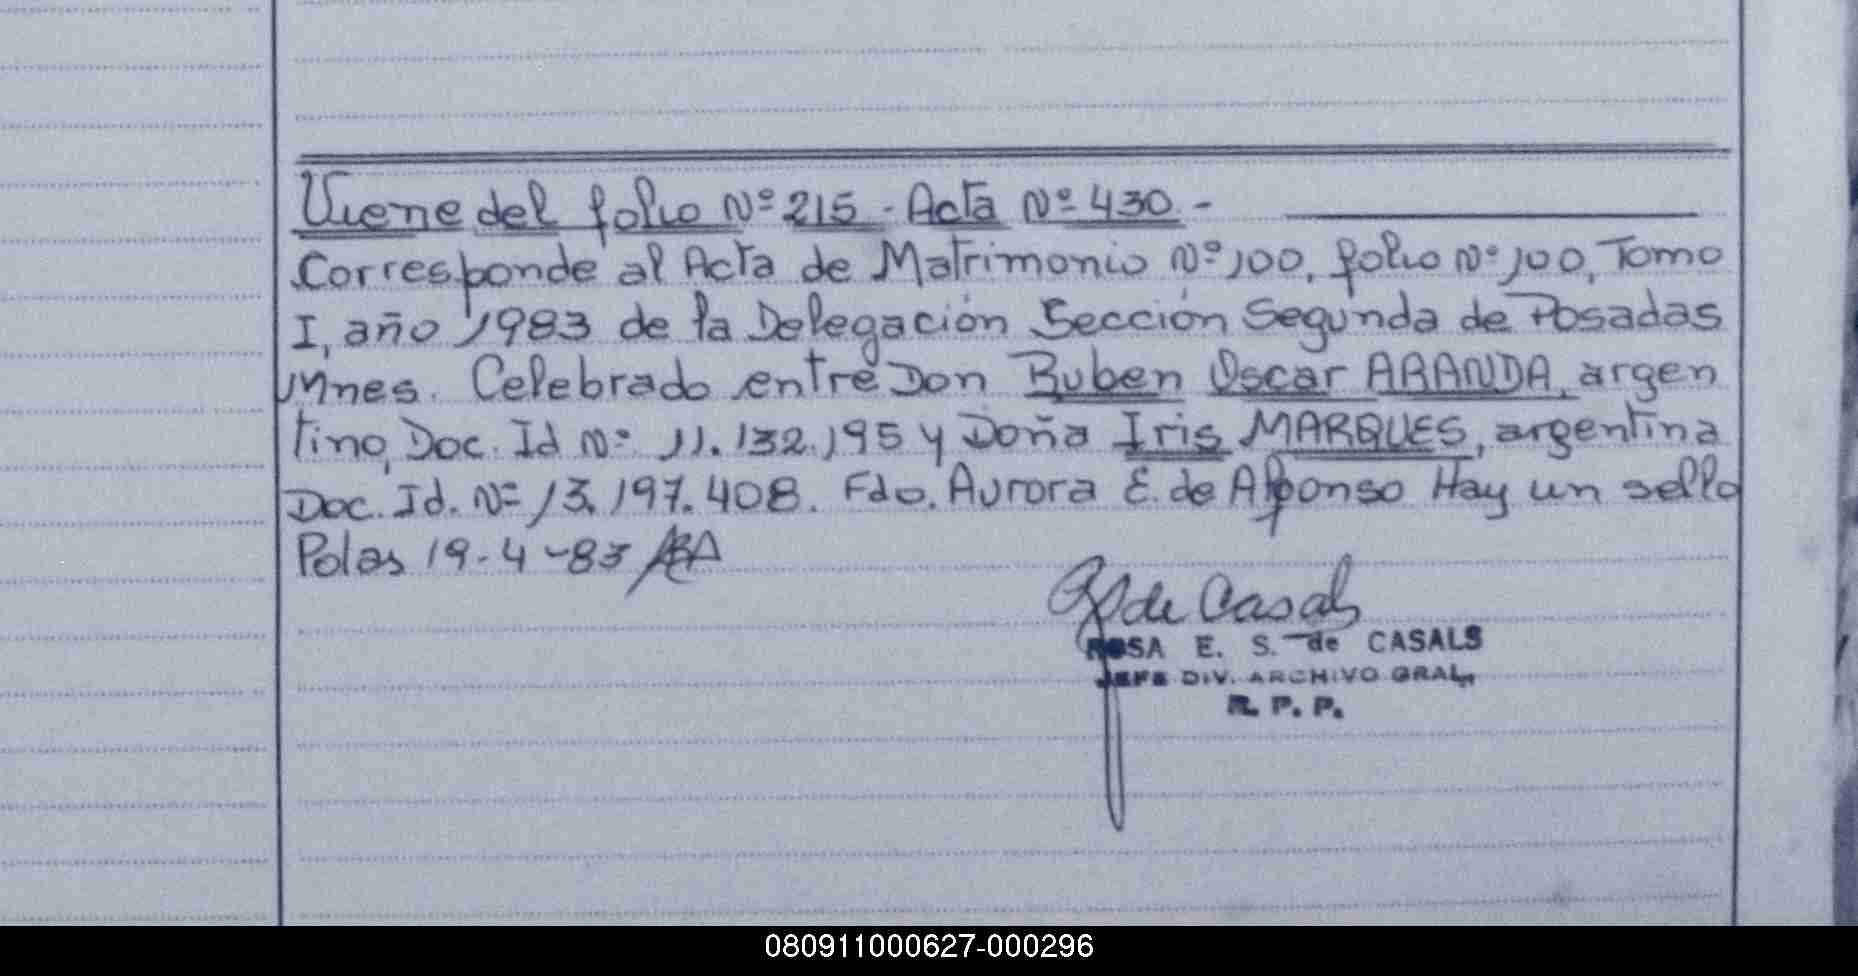 Viene del folio Nº 215 - Acta Nº 430 -
Corresponde al Acta de Matrimonio Nº 100, folio Nº 100, Tomo
I, año 1983 de la Delegación Sección Segunda de Posadas
Mnes. Celebrado entre Don Ruben Oscar ARANDA, argen
tino, Doc. Id Nº 11.132.195 y Doña Iris MARQUES, argentina
Doc. Id. Nº 13.197.408. Fdo. Aurora E. de Alfonso Hay un sello
Pdas 19-4-83
de Casals
ROSA E. S. de CASALS
JEFE DIV. ARCHIVO GRAL.
R. P. P.
080911000627-000296